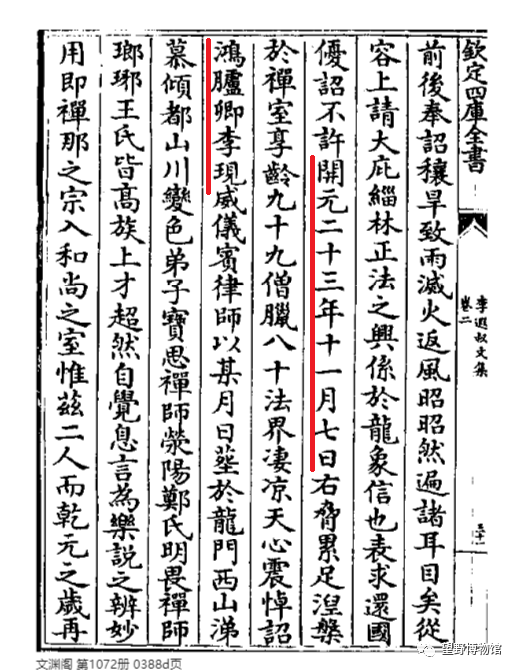 欽定四庫全書
李遐叔文集
卷二
三十一
前後奉詔禳旱致雨滅火返風昭昭然遍諸耳目矣從
容上請大庇緇林正法之興係於龍象信也表求還國
優詔不許開元二十三年十一月七日右脅累足涅槃
於禪室享齡九十九僧臘八十法界凄凉天心震悼詔
鴻臚卿李現威儀賓律師以某月日塟於龍門西山涕
慕傾都山川變色弟子寶思禪師滎陽鄭氏明畏禪師
瑯琊王氏皆髙族上才超然自覺息言為樂説之辨妙
用即禪那之宗入和尚之室惟兹二人而乾元之歲再
文渊阁 第1072册 0388d页
星野博物馆